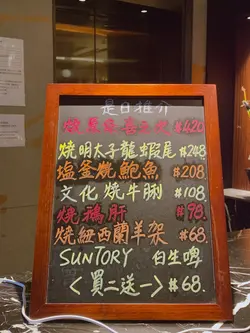 是日推介
$420
燒明太子龍蝦尾 $248
塩釜燒鮑魚 $208
文化燒牛脷 $108
燒鵝肝 $98
燒紐西蘭羊架 $68
SUNTORY 白生啤
<買二送一> $68